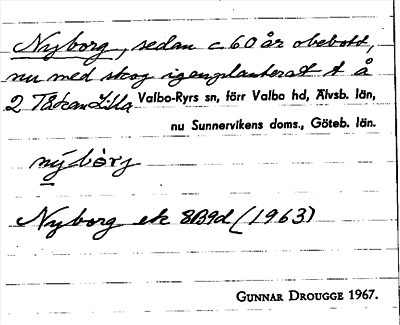 Nyborg, sedan c 60 år obebott,
nu med skog igenplanterat t å
2 Tåkan Lilla Valbo-Ryrs sn, förr Valbo hd, Älvsb. län,
nu Sunnervikens doms., Göteb. län.
nýbòrj
Nyborg ek 8B9d (1963)
GUNNAR DROUGGE 1967.